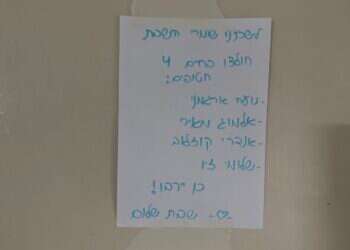 לשכנינו שומרי השבת
חולצו בחיים 4
חטופים:
- נועה ארגמני
- אלמוג מאיר
- אנדרי קוזלוב
- שלומי זיו
כן ירבו!
♡- שבת שלום